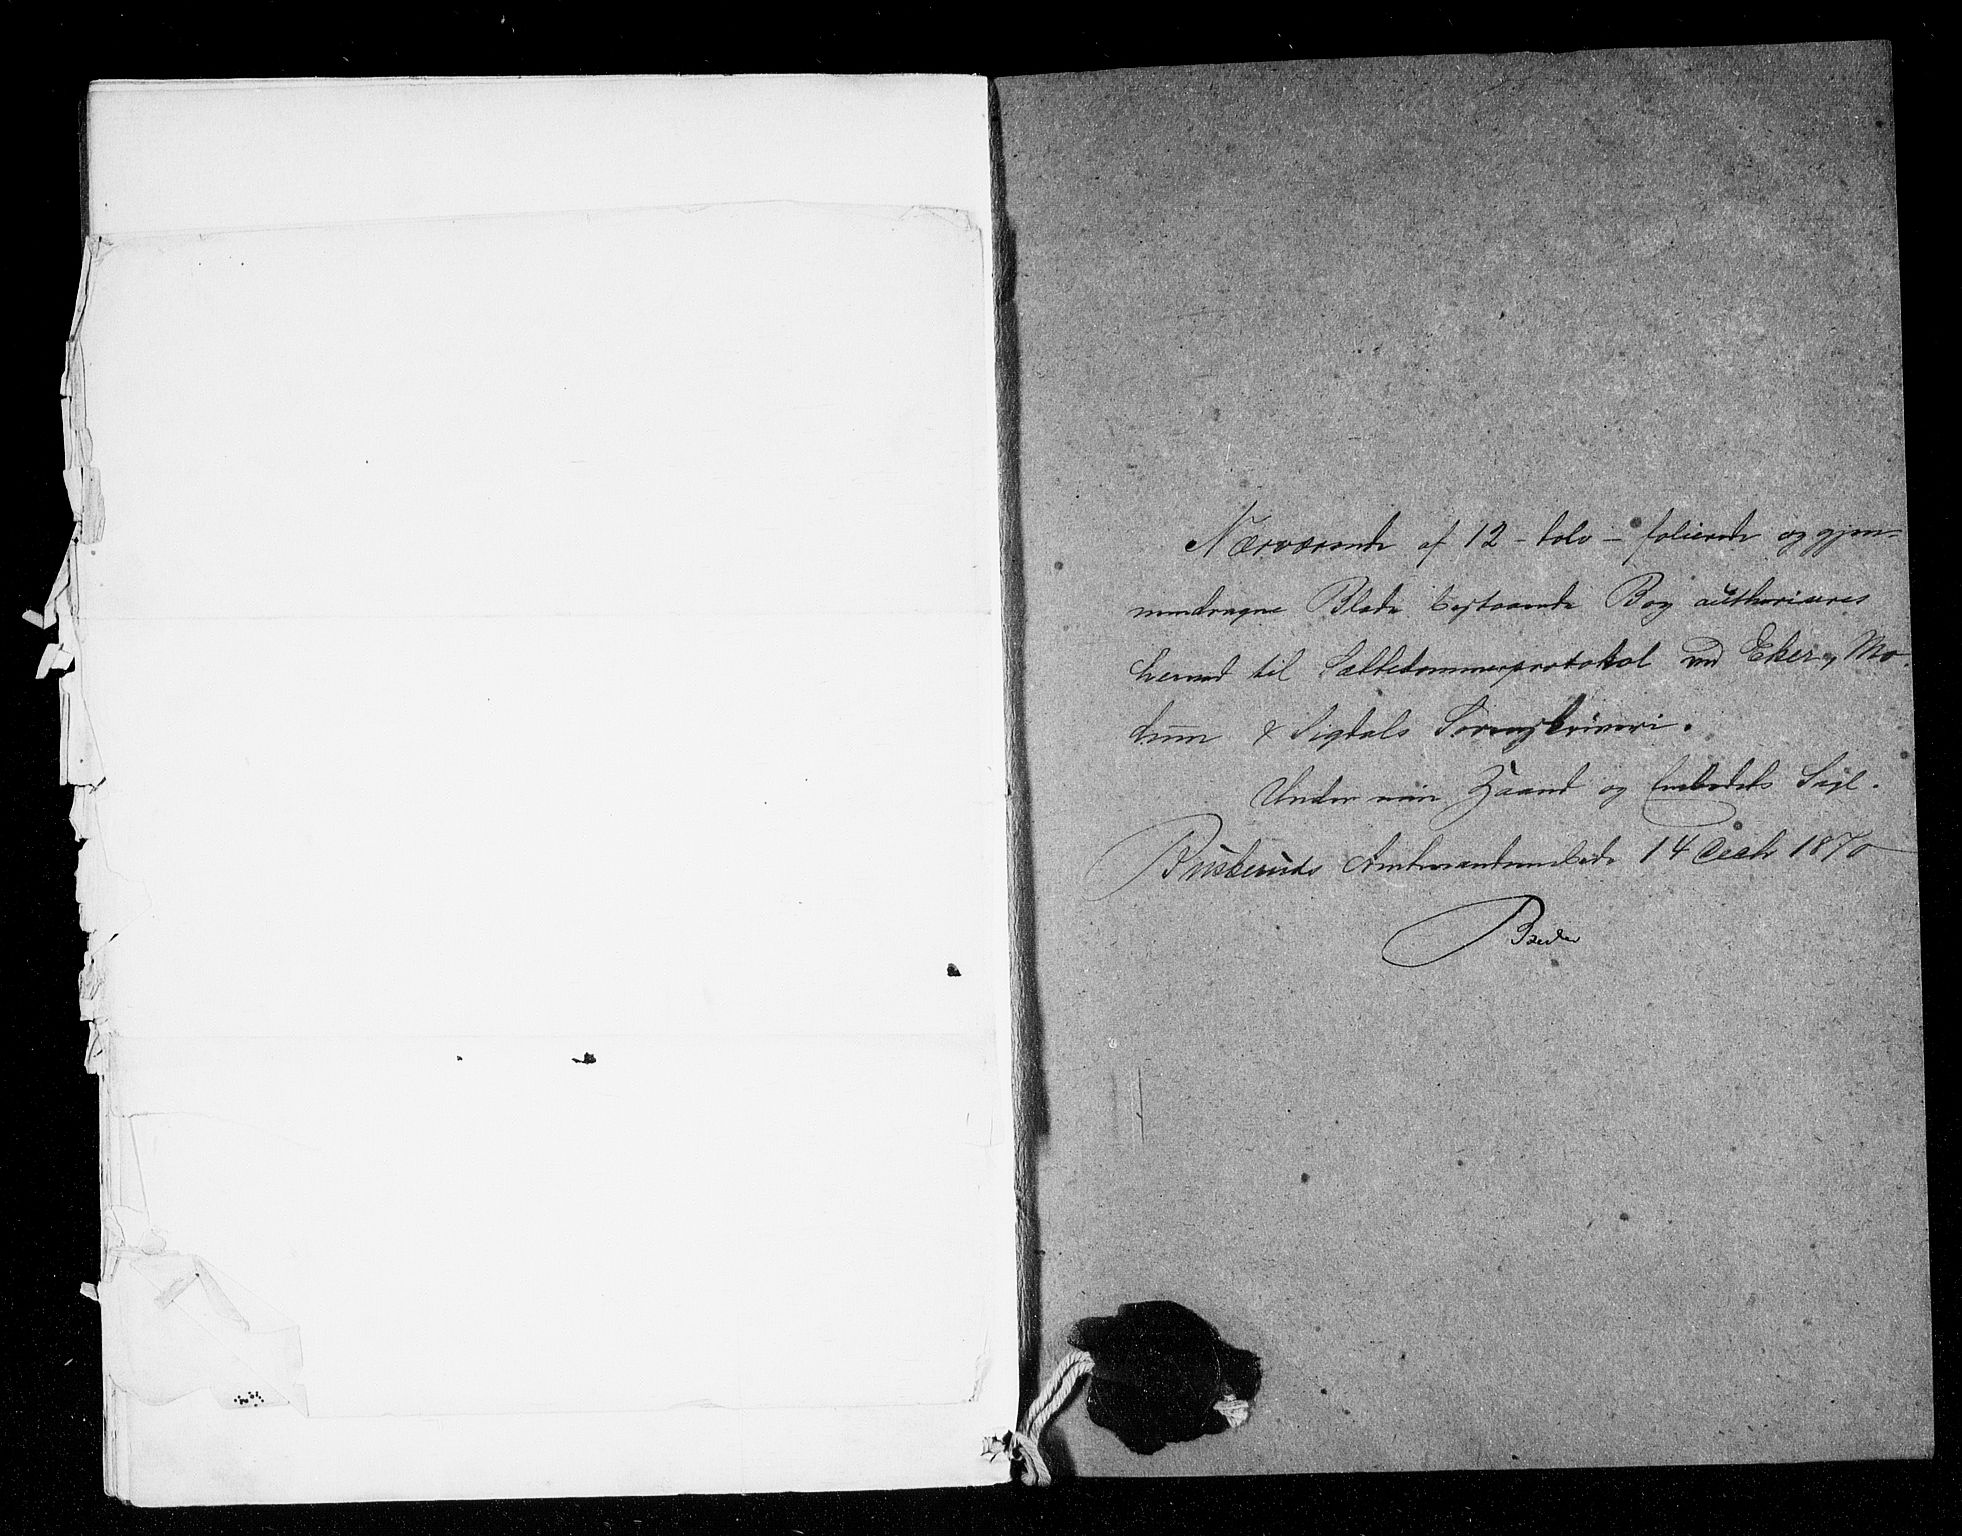 Nærværende af 12 - tolv - folierede og gjen-
nemdragne Blade bestaaende Bog authoriseres
herved til Sættedommerprotokol ved Eker, Mo-
dum & Sigdals Sorenskriveri.
Under min Haand og Embedets Segl.
Buskeruds Amtmandsembede 14 1870